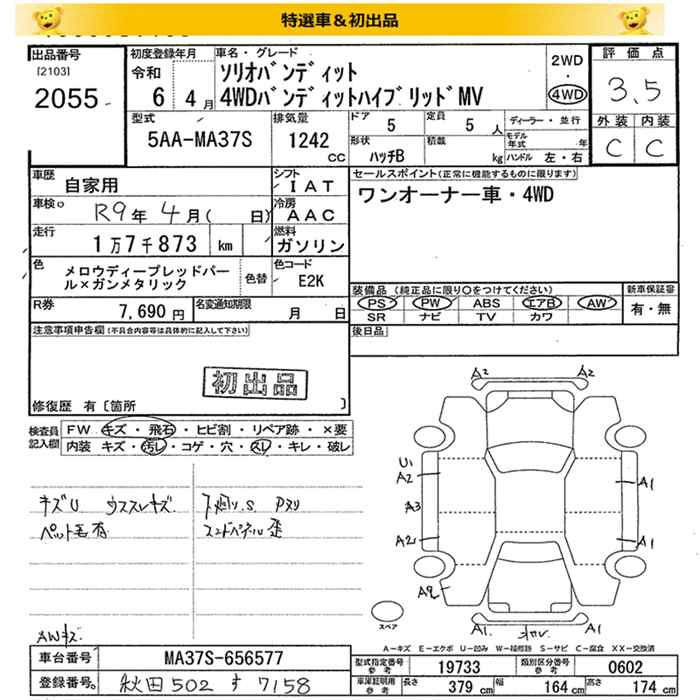 特選車＆初出品
出品番号 初度登録年月 車名・グレード 2WD 評価点
[2103] 令和 ソリオバンディット ・
2055 6年 4月 4WDバンディットハイブリッドMV 4WD 3.5
型式 排気量 ドア 5 定員 5人 ディーラー・並行 外装 内装
5AA-MA37S 1242 cc 形状 ハッチB 積載 kg モデル年式 年 C C
ハンドル 左・右
車歴 自家用 シフト IAT セールスポイント(正常に機能するものに限ります)
車検 R9年 4月( 日) 冷房 AAC ワンオーナー車・4WD
走行 1万7千873 km 燃料 ガソリン
色 メロウディープレッドパール×ガンメタリック 色替 色コード E2K
装備品 (純正品に限り○をつけてください) 新車保証書
PS PW ABS エアB AW 有・無
R券 7,690円 名変通知期限 月 日 SR ナビ TV カワ
注意事項申告欄(不具合内容等は具体的に記入して下さい) 後日品
初出品
修復歴 有〔箇所 〕
検査員記入欄 FW キズ・飛石・ヒビ割・リペア跡・×要
内装 キズ・汚レ・コゲ・穴・スレ・キレ・破レ
キズU ウススレキズ 下廻り.S Pヌリ
ペット毛有
AWキズ
A2 A2
U1
A2 A1
A3
A2 A1
A2
A1. A1
スペア
A-キズ E-エクボ U-凹み W-補修跡 S-サビ C-腐食 XX-交換済
車台番号 MA37S-656577 型式指定番号 参考 19733 類別区分番号 参考 0602
登録番号 秋田 502 す 7158 車庫証明用 参考 長さ 379 cm 幅 164 cm 高さ 174 cm